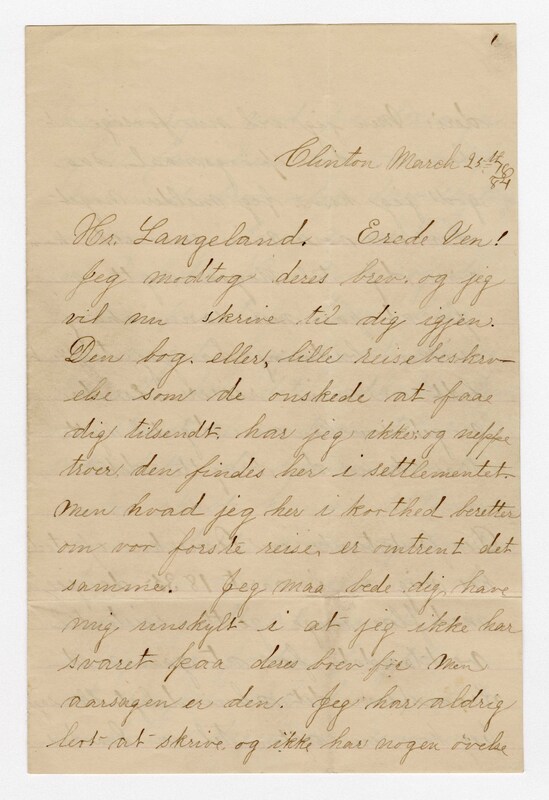 1
Clinton March 25th 76/84
Hr. Langeland. Erede Ven!
Jeg modtog deres brev. og jeg
vil nu skrive til dig igjen.
Den bog. eller, lille reisebeskrv-
else som de onskede at faae
dig tilsendt. har jeg ikke. og neppe
troer den findes her i settlementet.
Men hvad jeg her i korthed beretter
om vor forste reise, er omtrent det
samme. Jeg maa bede dig, have
mig unskylt i at jeg ikke har
svaret paa deres brev før Men
aarsagen er den. Jeg har aldrig
lert at skrive, og ikke har nogen øvelse